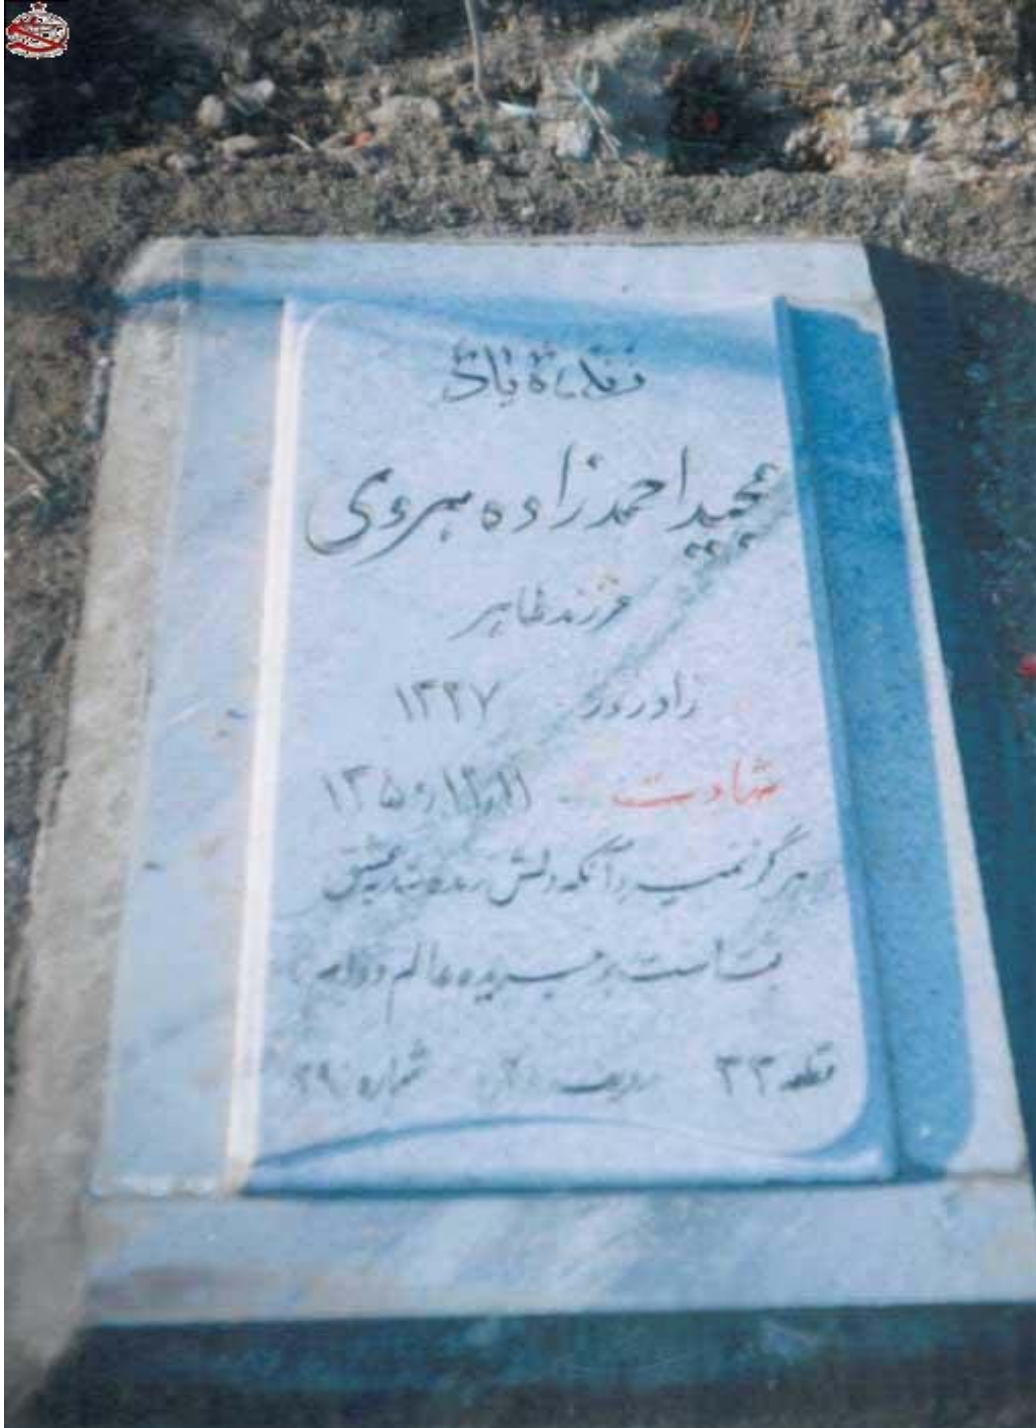 مجید احمدزاده هروی
فرزند طاهر
زادروز ۱۳۲۷
شهادت ۱۱ر۱۲ر۱۳۵۰
هرگز نمیرد آنکه دلش زنده شد بعشق
ثبت است بر جریده عالم دوام
قطعه ۳۳ ردیف شماره